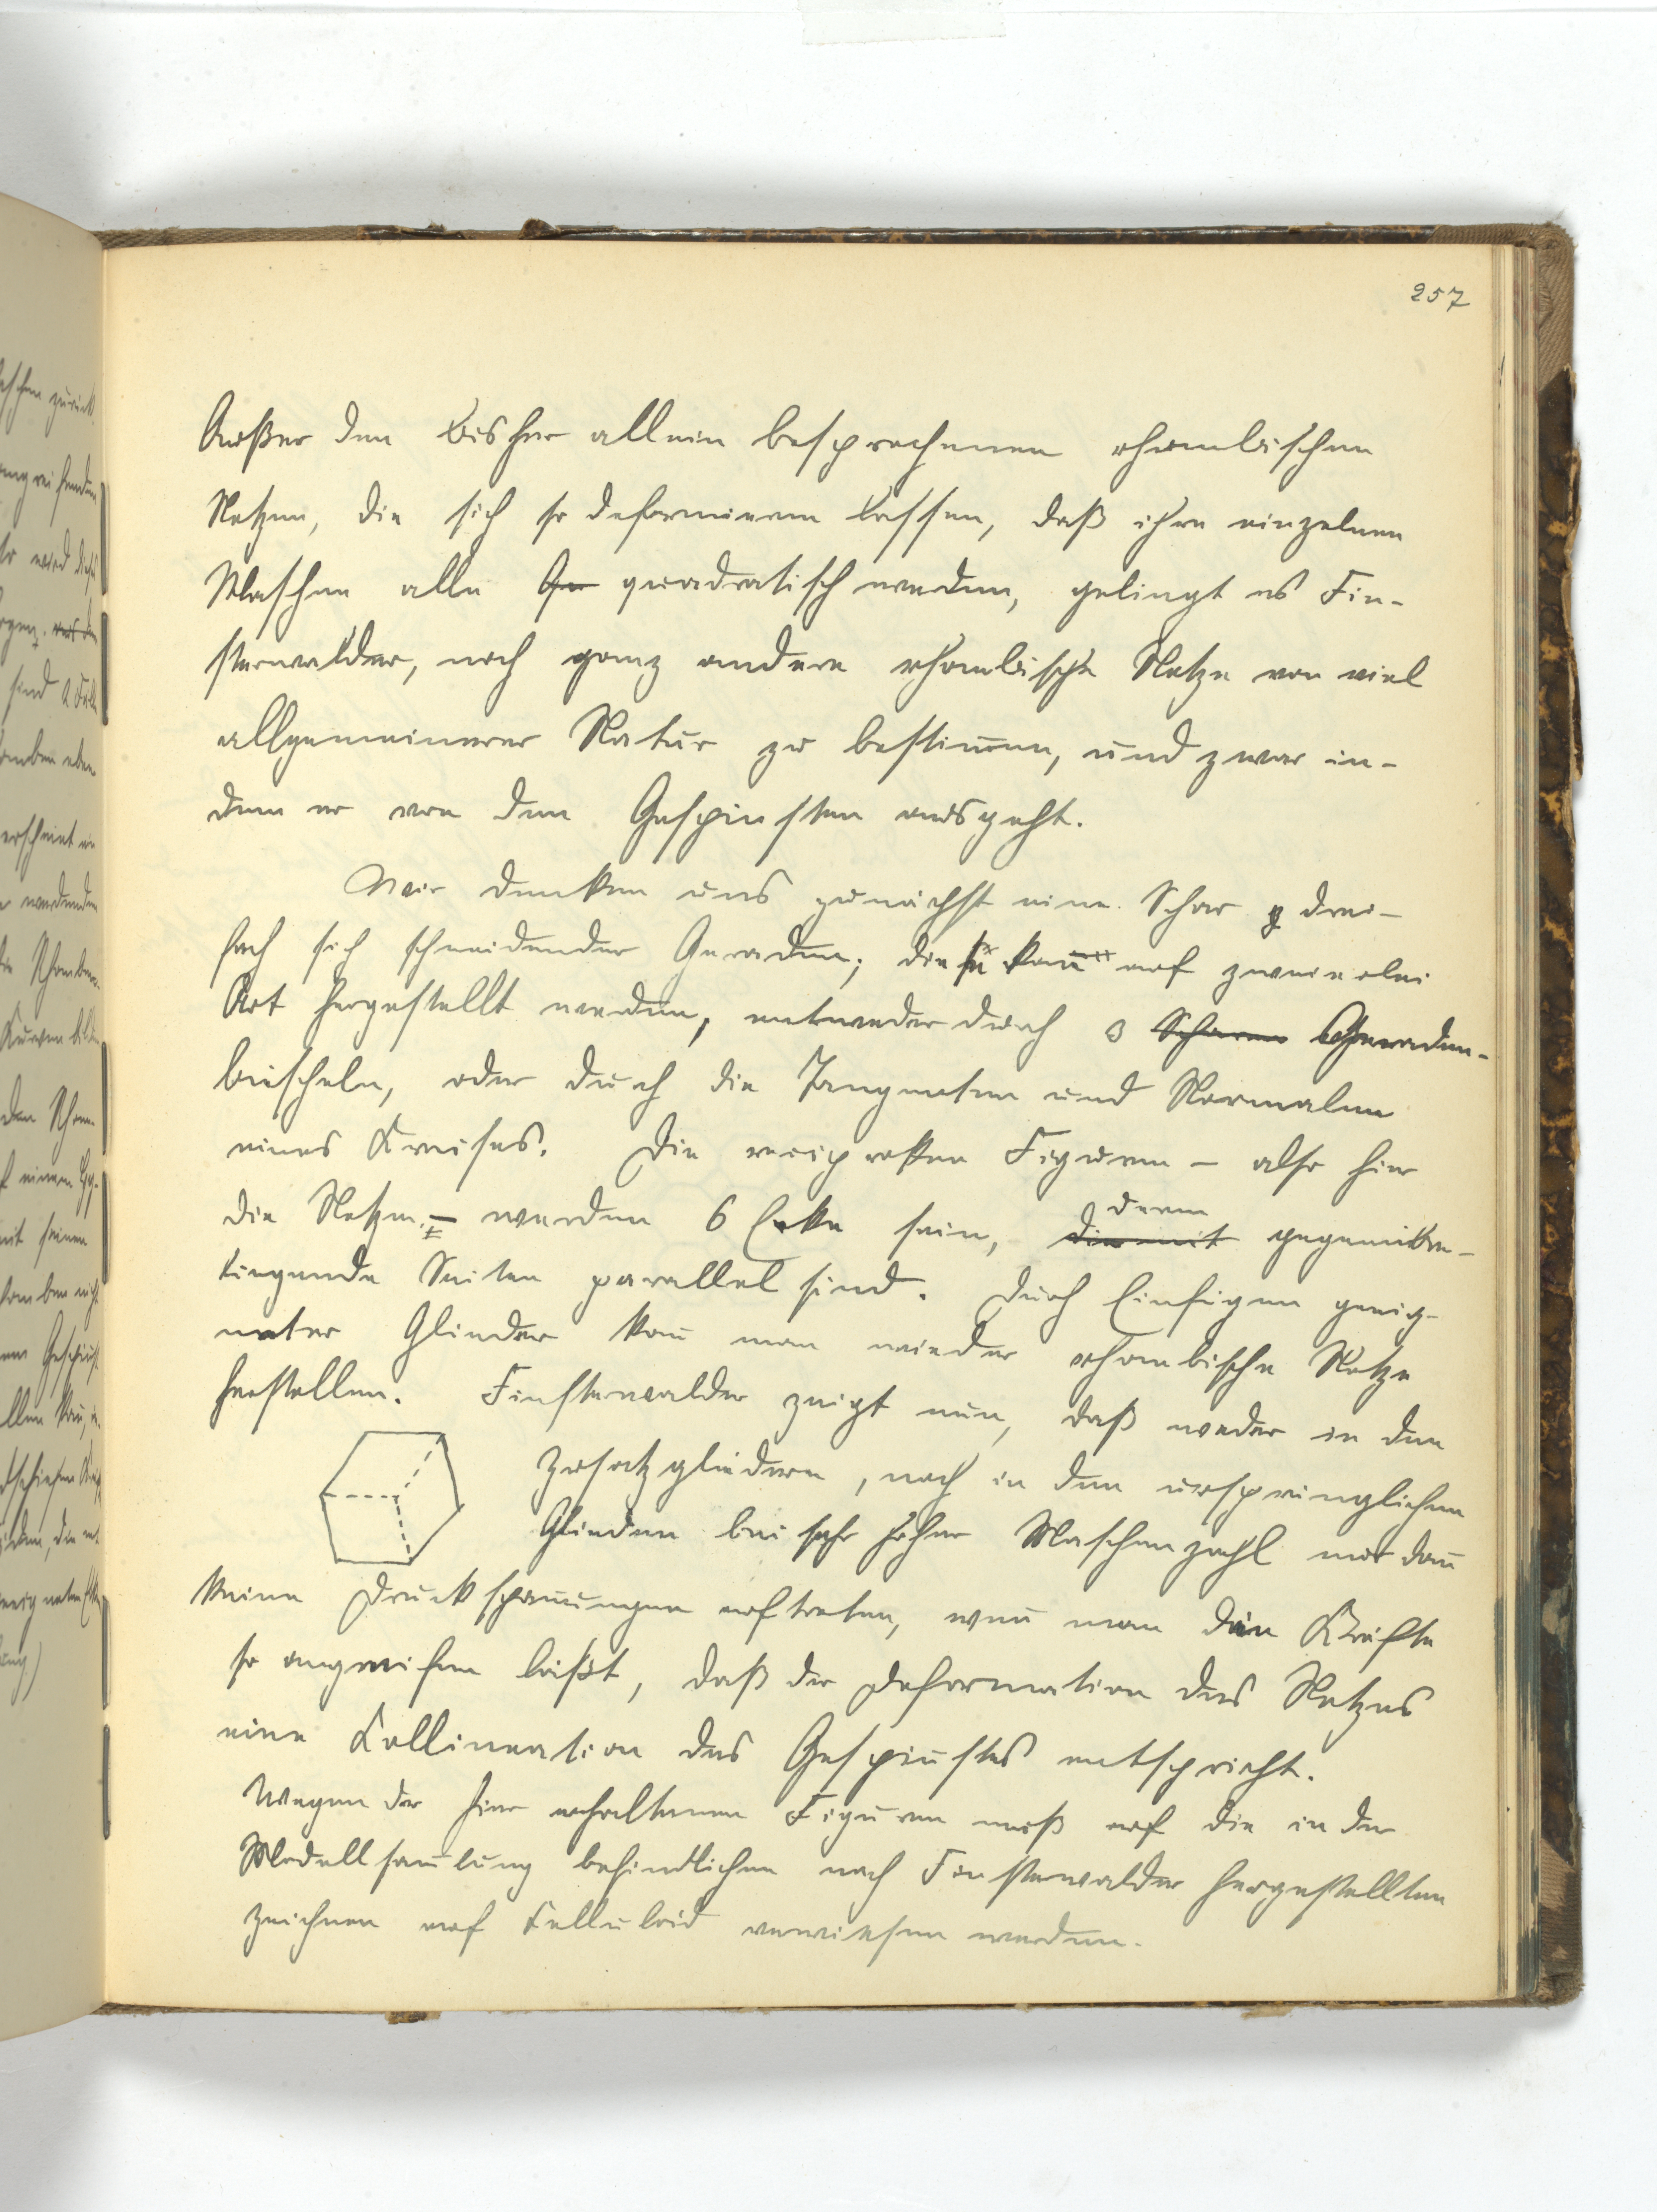 257
Außer den bisher allein besprochenen rhombischen
Netzen, die sich so deformieren lassen, daß ihre einzelnen
Maschen alle quadratisch werden, gelingt es Fin-
sterwalder, noch ganz andere rhombische Netze von viel
allgemeinerer Natur zu bestim̄en, und zwar in-
dem er von den Gespinsten ausgeht.
Wir denken uns zunächst eine Schar drei-
fach sich schneidender Geraden; diese kan̄ auf zweierlei
Art hergestellt werden, entweder durch 3 Scharen Geraden-
büscheln, oder durch die Tangenten und Normalen
eines Kreises. Die reciproken Figuren – also hier
die Netze – werden 6 Ecke sein, die mit deren gegenüber-
liegende Seiten parallel sind. Durch Einfügen geeig-
neter Glieder kan̄ man wieder rhombische Netze
herstellen. Finsterwalder zeigt nun, daß weder in den
Zusatzgliedern, noch in den ursprünglichen
Gliedern bei sehr hoher Maschenzahl nur dan̄
keine Druckspan̄ungen auftreten, wen̄ man die Kräfte
so angreifen läßt, daß der Deformation des Netzes
eine Kollineation des Gespinstes entspricht.
Wegen der hier erhaltenen Figuren muß auf die in der
Modellsam̄lung befindlichen nach Finsterwalder hergestellten
Zeichnen auf Celluloid verwiesen werden.